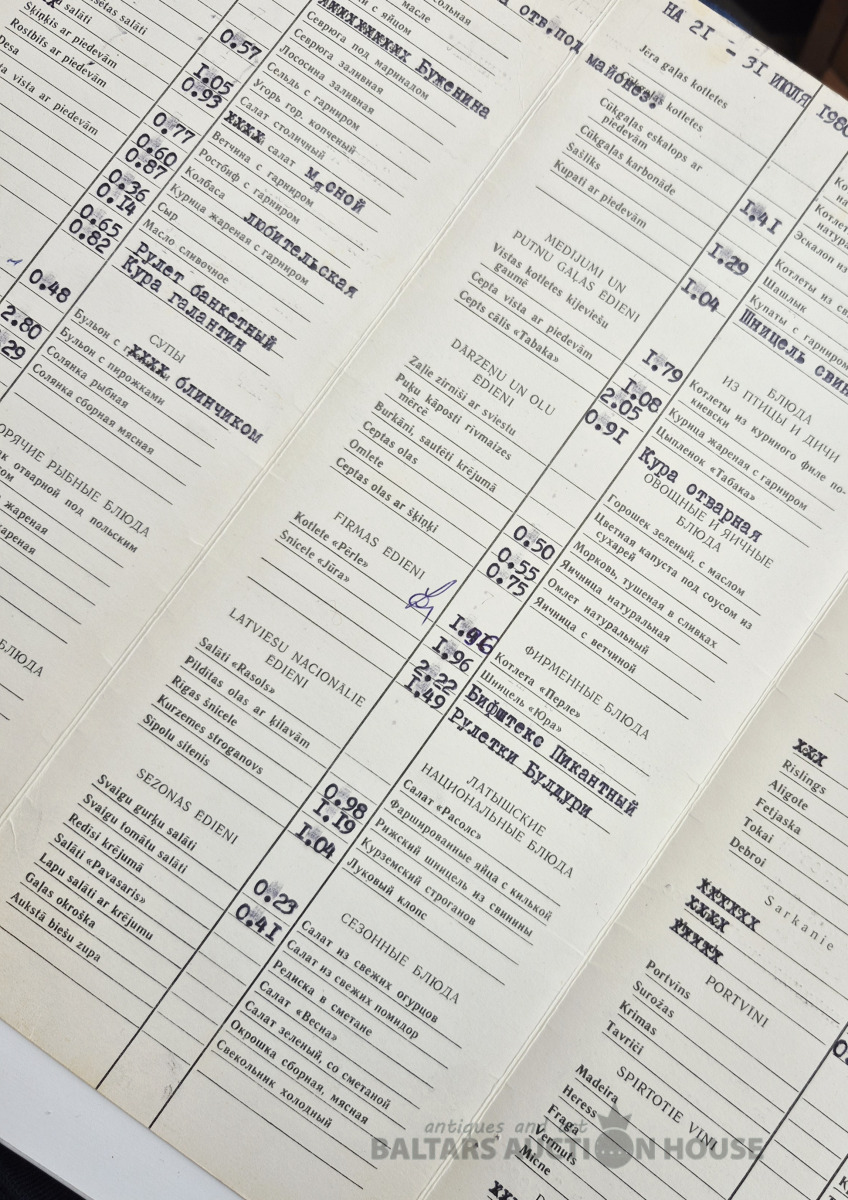 salāti
Šķiņķis ar piedevām
Rostbifs ar piedevām
Desa
vista ar piedevām
0.57
1.05
0.93
0.77
0.60
0.87
0.36
0.14
0.65
0.82
0.48
2.80
29
Буженина
Севрюга под маринадом
Севрюга заливная
Лососина заливная
Сельдь с гарниром
Угорь гор. копченый
Салат столичный
ХХХХ салат мясной
Ветчина с гарниром
Ростбиф с гарниром
Колбаса любительская
Сыр
Курица жареная с гарниром
Масло сливочное
Рулет банкетный
Кура галантин
СУПЫ
Бульон с ХХХХ блинчиком
Бульон с пирожками
Солянка рыбная
Солянка сборная мясная
ОРЯЧИЕ РЫБНЫЕ БЛЮДА
отварной под польским
жареная
жареная
БЛЮДА
отв.под майонез.
НА 21 - 31 ИЮЛЯ 1980
Jēra gaļas kotletes
Cūkgaļas kotletes
Cūkgaļas eskalops ar
piedevām
Cūkgaļas karbonāde
Šašliks
Kupati ar piedevām
MEDIJUMI UN
PUTNU GAĻAS ĒDIENI
Vistas kotletes kijeviešu
gaumē
Cepta vista ar piedevām
Cepts cālis «Tabaka»
DĀRZEŅU UN OLU
ĒDIENI
Zaļie zirnīši ar sviestu
Puķu kāposti rīvmaizes
mērcē
Burkāni, sautēti krējumā
Ceptas olas
Omlete
Ceptas olas ar šķiņķi
FIRMAS ĒDIENI
Kotlete «Pērle»
Šnicele «Jūra»
LATVIEŠU NACIONĀLIE
ĒDIENI
Salāti «Rasols»
Pildītas olas ar ķilavām
Rīgas šnicele
Kurzemes stroganovs
Sīpolu sitenis
SEZONAS ĒDIENI
Svaigu gurķu salāti
Svaigu tomātu salāti
Redīsi krējumā
Salāti «Pavasaris»
Lapu salāti ar krējumu
Gaļas okroška
Aukstā biešu zupa
1.41
1.29
1.04
1.79
1.08
2.05
0.91
0.50
0.55
0.75
1.96
1.96
2.22
1.49
0.98
1.19
1.04
0.23
0.41
Эскалоп из
Котлеты из
Шашлык
Купаты с гарниром
Шницель свин
БЛЮДА
ИЗ ПТИЦЫ И ДИЧИ
Котлеты из куриного филе по-
киевски
Курица жареная с гарниром
Цыпленок «Табака»
Кура отварная
ОВОЩНЫЕ И ЯИЧНЫЕ
БЛЮДА
Горошек зеленый, с маслом
Цветная капуста под соусом из
сухарей
Морковь, тушеная в сливках
Яичница натуральная
Омлет натуральный
Яичница с ветчиной
ФИРМЕННЫЕ БЛЮДА
Котлета «Перле»
Шницель «Юра»
Бифштекс Пикантный
Рулетки Булдури
ЛАТЫШСКИЕ
НАЦИОНАЛЬНЫЕ БЛЮДА
Салат «Расолс»
Фаршированные яйца с килькой
Рижский шницель из свинины
Курземский строганов
Луковый клопс
СЕЗОННЫЕ БЛЮДА
Салат из свежих огурцов
Салат из свежих помидор
Редиска в сметане
Салат «Весна»
Салат зеленый, со сметаной
Окрошка сборная, мясная
Свекольник холодный
ХХХ
Rislings
Aligote
Fetjaska
Tokai
Debroi
Sarkanie
ХХХХХХ
ХХХХ
ХХХХХ
PORTVĪNI
Portvīns
Surožas
Krimas
Tavriči
SPIRTOTIE VĪNI
Madeira
Heress
Fraga
Vermuts
antiques and art
BALTARS AUCTION HOUSE